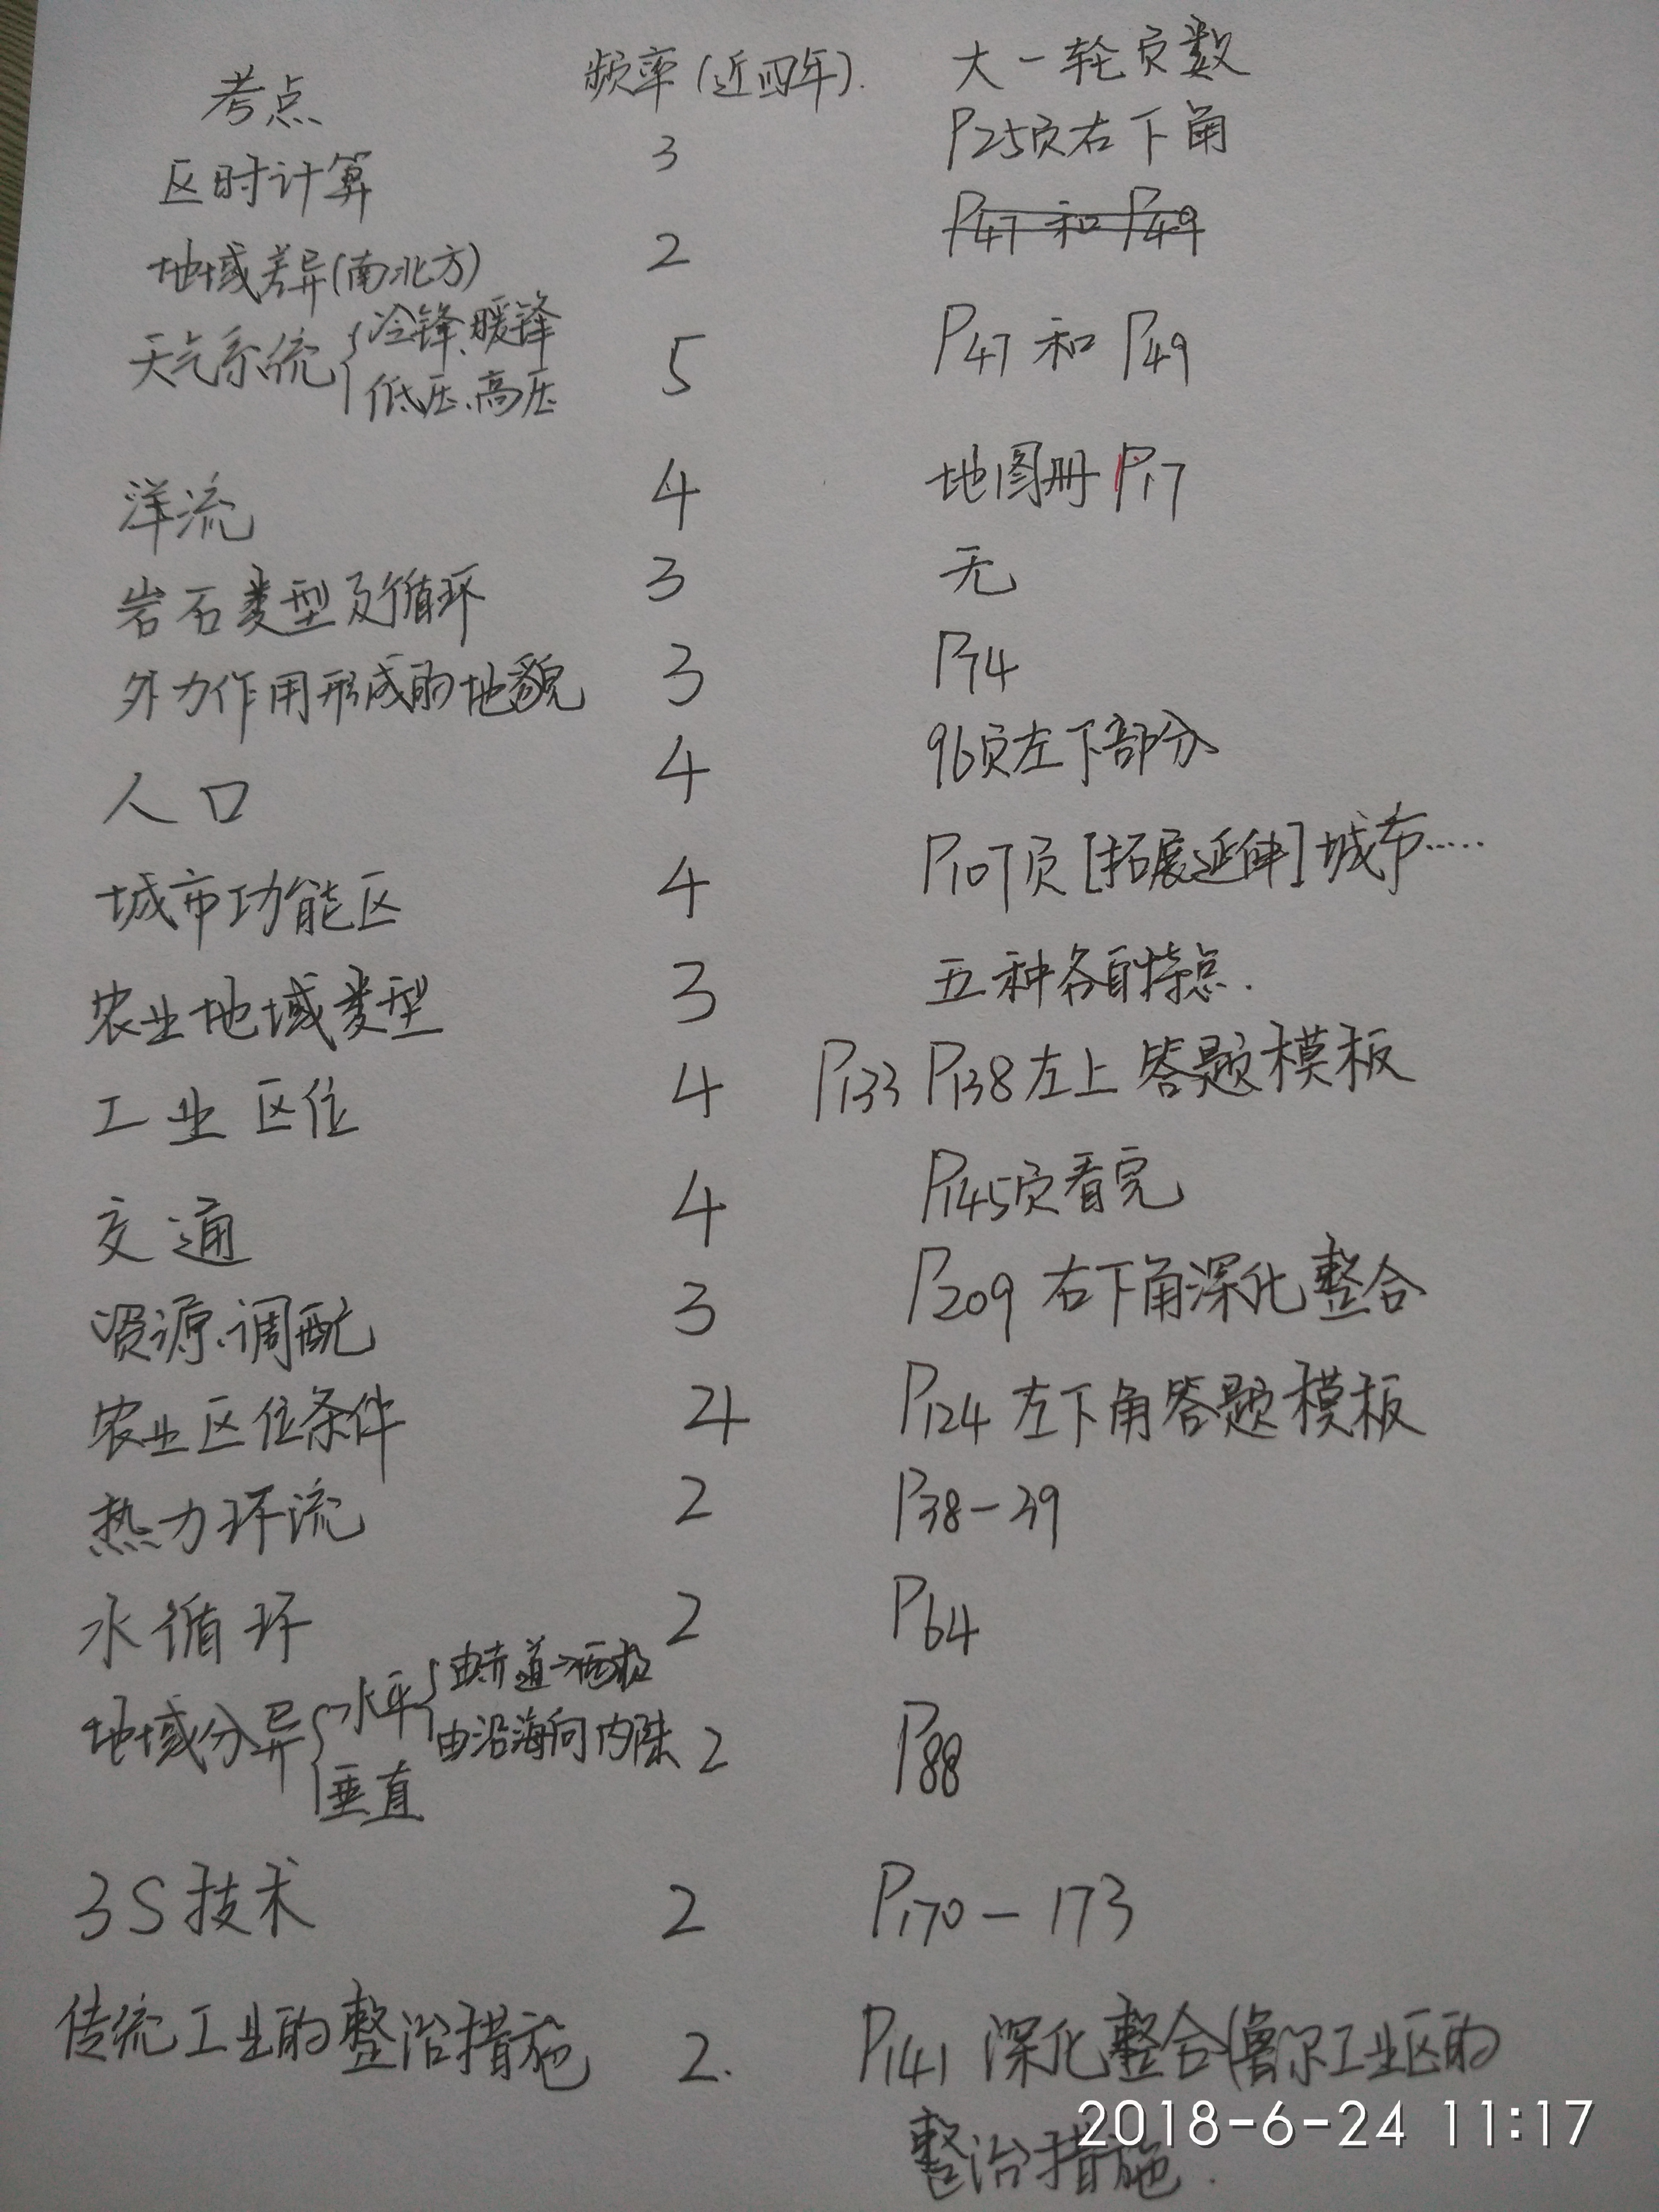 考点 频率(近四年). 大一轮页数
区时计算 3 P25页右下角
地域差异(南北方) 2 P47和P49
天气系统{冷锋、暖锋 5 P47和P49
低压、高压
洋流 4 地图册P17
岩石类型及循环 3 无
外力作用形成的地貌 3 P74
人口 4 96页左下部分
城市功能区 4 P107页[拓展延伸]城市.....
农业地域类型 3 五种各自特点.
工业区位 4 P133 P138左上答题模板
交通 4 P145页看完
资源、调配 3 P209 右下角深化整合
农业区位条件 4 P124 左下角答题模板
热力环流 2 P38-39
水循环 2 P64
地域分异{水平{由赤道→两极
由沿海向内陆 2 P88
垂直
3S技术 2 P170-173
传统工业的整治措施 2. P141 深化整合(鲁尔工业区的
整治措施.
2018-6-24 11:17